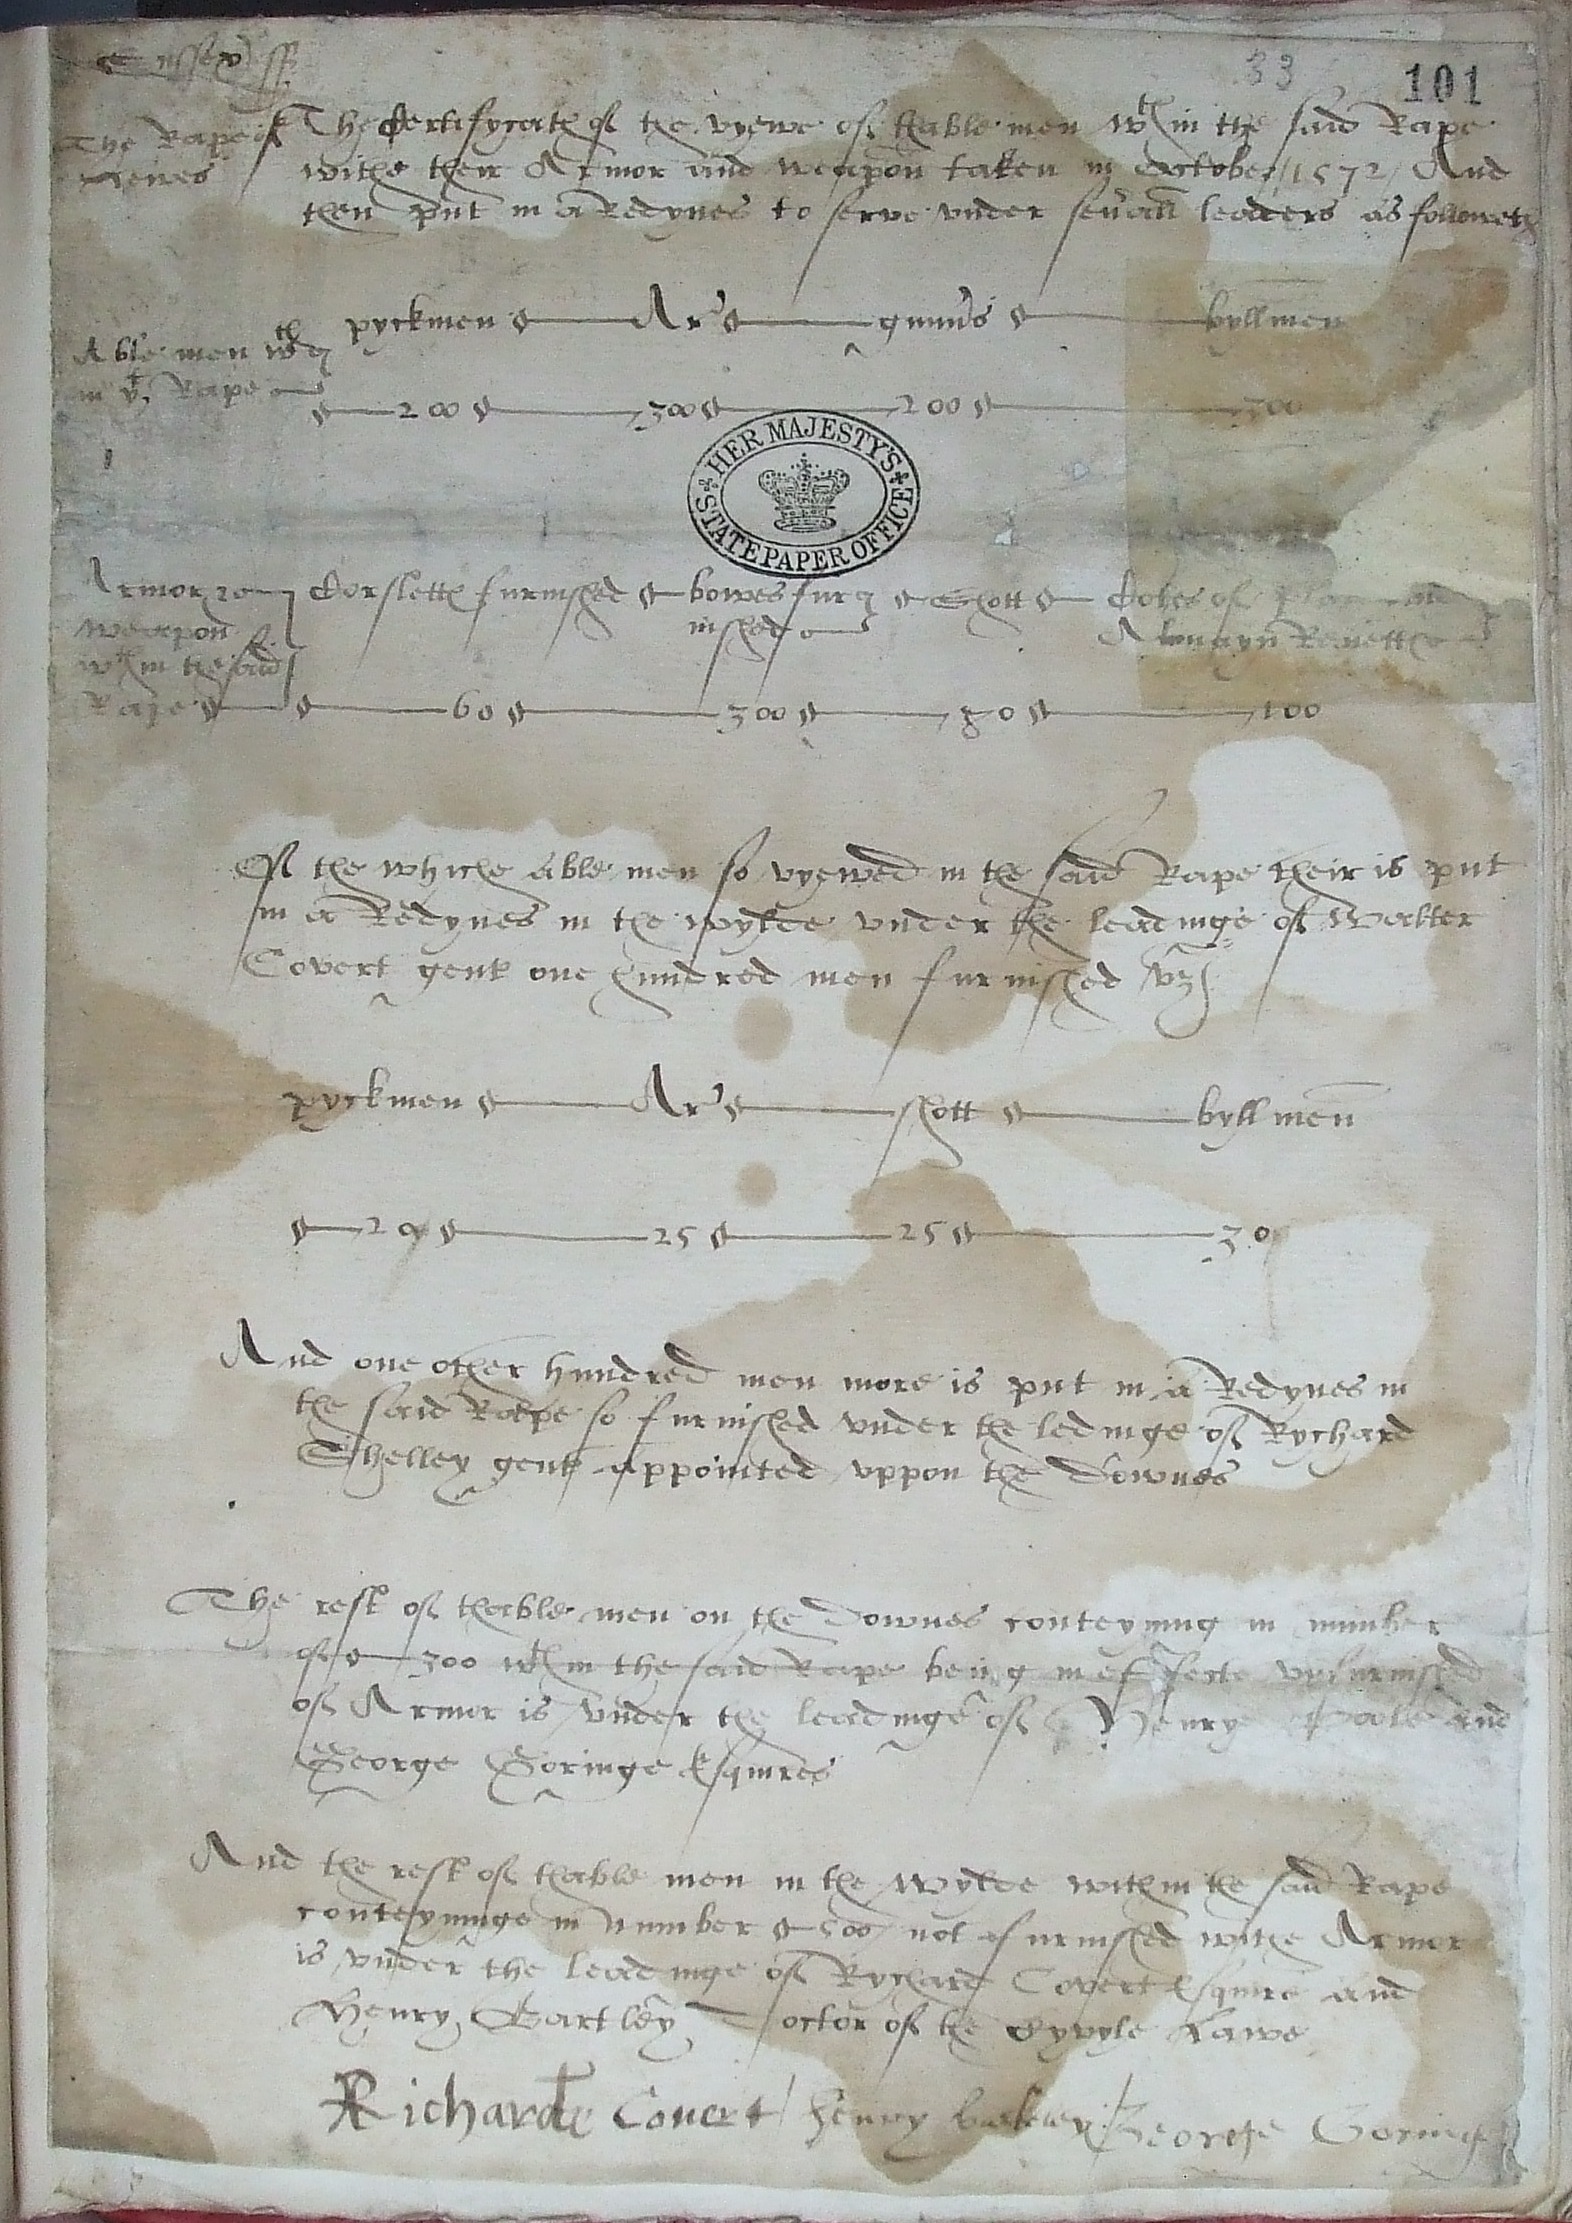 Sussex ss
33
101
The Rape of
Lewes
The Certifycath of the vyewe of thable men wth in the said Rape
withe their Armor and weapon taken in October 1572 And
then put in a Redynes to serve vnder seu'all leaders as followeth
Able men wth
in ye Rape
pyckmen Ar's gunn's byllmen
200 300 200 300
HER MAJESTY'S
STATE PAPER OFFICE
Armor and
weapon
wth in the said
Rape
Corsletts furnished bowes fur
nished Shott Cotes of and
Almayn Revetts
60 300 80 100
Of the whiche able men so vyewed in the said Rape their is put
in a Redynes in the wylde vnder the leadinge of Walter
Covert gent one hundred men furnished vz
pyckmen Ar's shott byll men
20 25 25 30
And one other hundred men more is put in a Redynes in
the said Rape so furnished vnder the ledinge of Rychard
Shelley gent appointed vppon the Downes
The rest of thable men on the Downes conteyning in number
of 300 wth in the said Rape being in effecte vnfurnished
of Armor is vnder the leadinge of Henrye Poole and
George Goringe Esquires
And the rest of thable men in the wylde within the said Rape
conteyninge in number 500 not furnished withe Armor
is vnder the leadinge of Rychard Covert Esquire and
Henry Bartley Doctor of the Cyvyle Lawe
Richarde Covert henry barkley George Goring